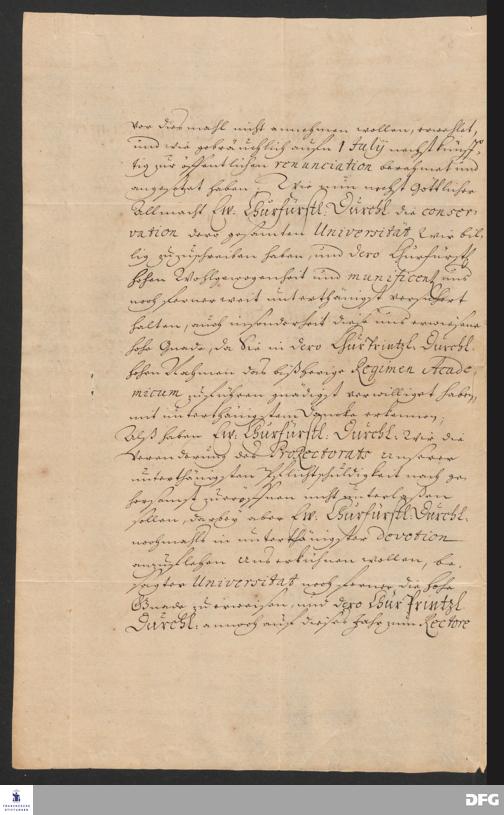 vor dies mahl nicht annehmen wollen, erwehlet,
und wie gebräuchlich aufn 1 July nechst künff-
tig zur öffentlichen renunciation berahmet und
angesetzet haben. Wie nun nechst Göttlicher
Allmacht Ew. Churfürstl: Durchl. die conser-
vation dero gesamten Universitat wir bil-
lig zuzuschreiben haben, und dero Churfürstl.
hohen Wohlgewogenheit und munificentz uns
noch ferner weit unterthänigst versichert
halten, auch insonderheit diese uns erwiesene
hohe Gnade, da Sie in dero ChurPrintzl. Durchl.
hohen Nahmen das bißherige Regimen Acade-
micum zuführen gnädigst verwilliget haben,
mit unterthänigstem Dancke erkennen;
Alß haben Ew. Churfürstl: Durchl: wir die
Veränderung des ProRectorats unserer
unterthänigsten Pflichtschuldigkeit nach ge-
horsamst zueröffnen nicht unterlaßen
sollen, darbey aber Ew. Churfürstl. Durchl.
nochmahls in unterthänigster devotion
anzuflehen uns erkühnen wollen, be-
sagter Universitat noch ferner die hohe
Gnade zu erweisen, und dero ChurPrintzl.
Durchl: annoch auf dieses Jahr zum Rectore
FRANCKESCHE STIFTUNGEN
DFG